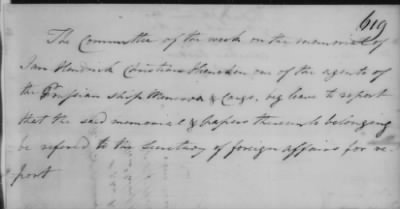 619
The Committee of the week on the memorial of
Jan Hendrick Christian Heineken one of the agents of
the Prussian Ship Minerva & Cargo, beg leave to report
that the said memorial & papers thereunto belonging
be refered to the Secretary of foreign affairs for re-
port